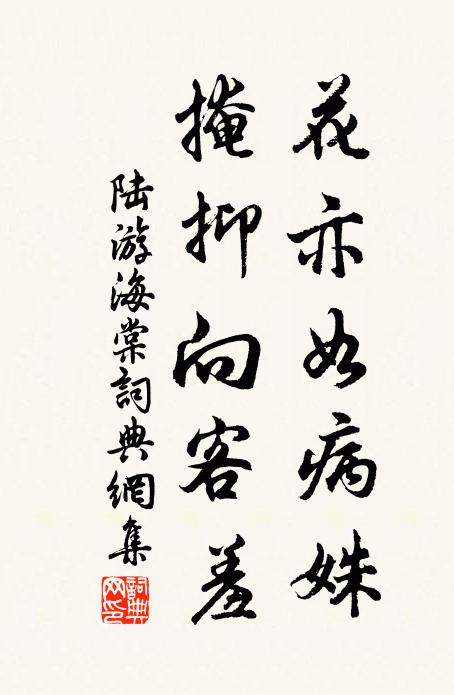 花亦如病姝
掩抑向客羞
陆游海棠詞典網集
詞典网印